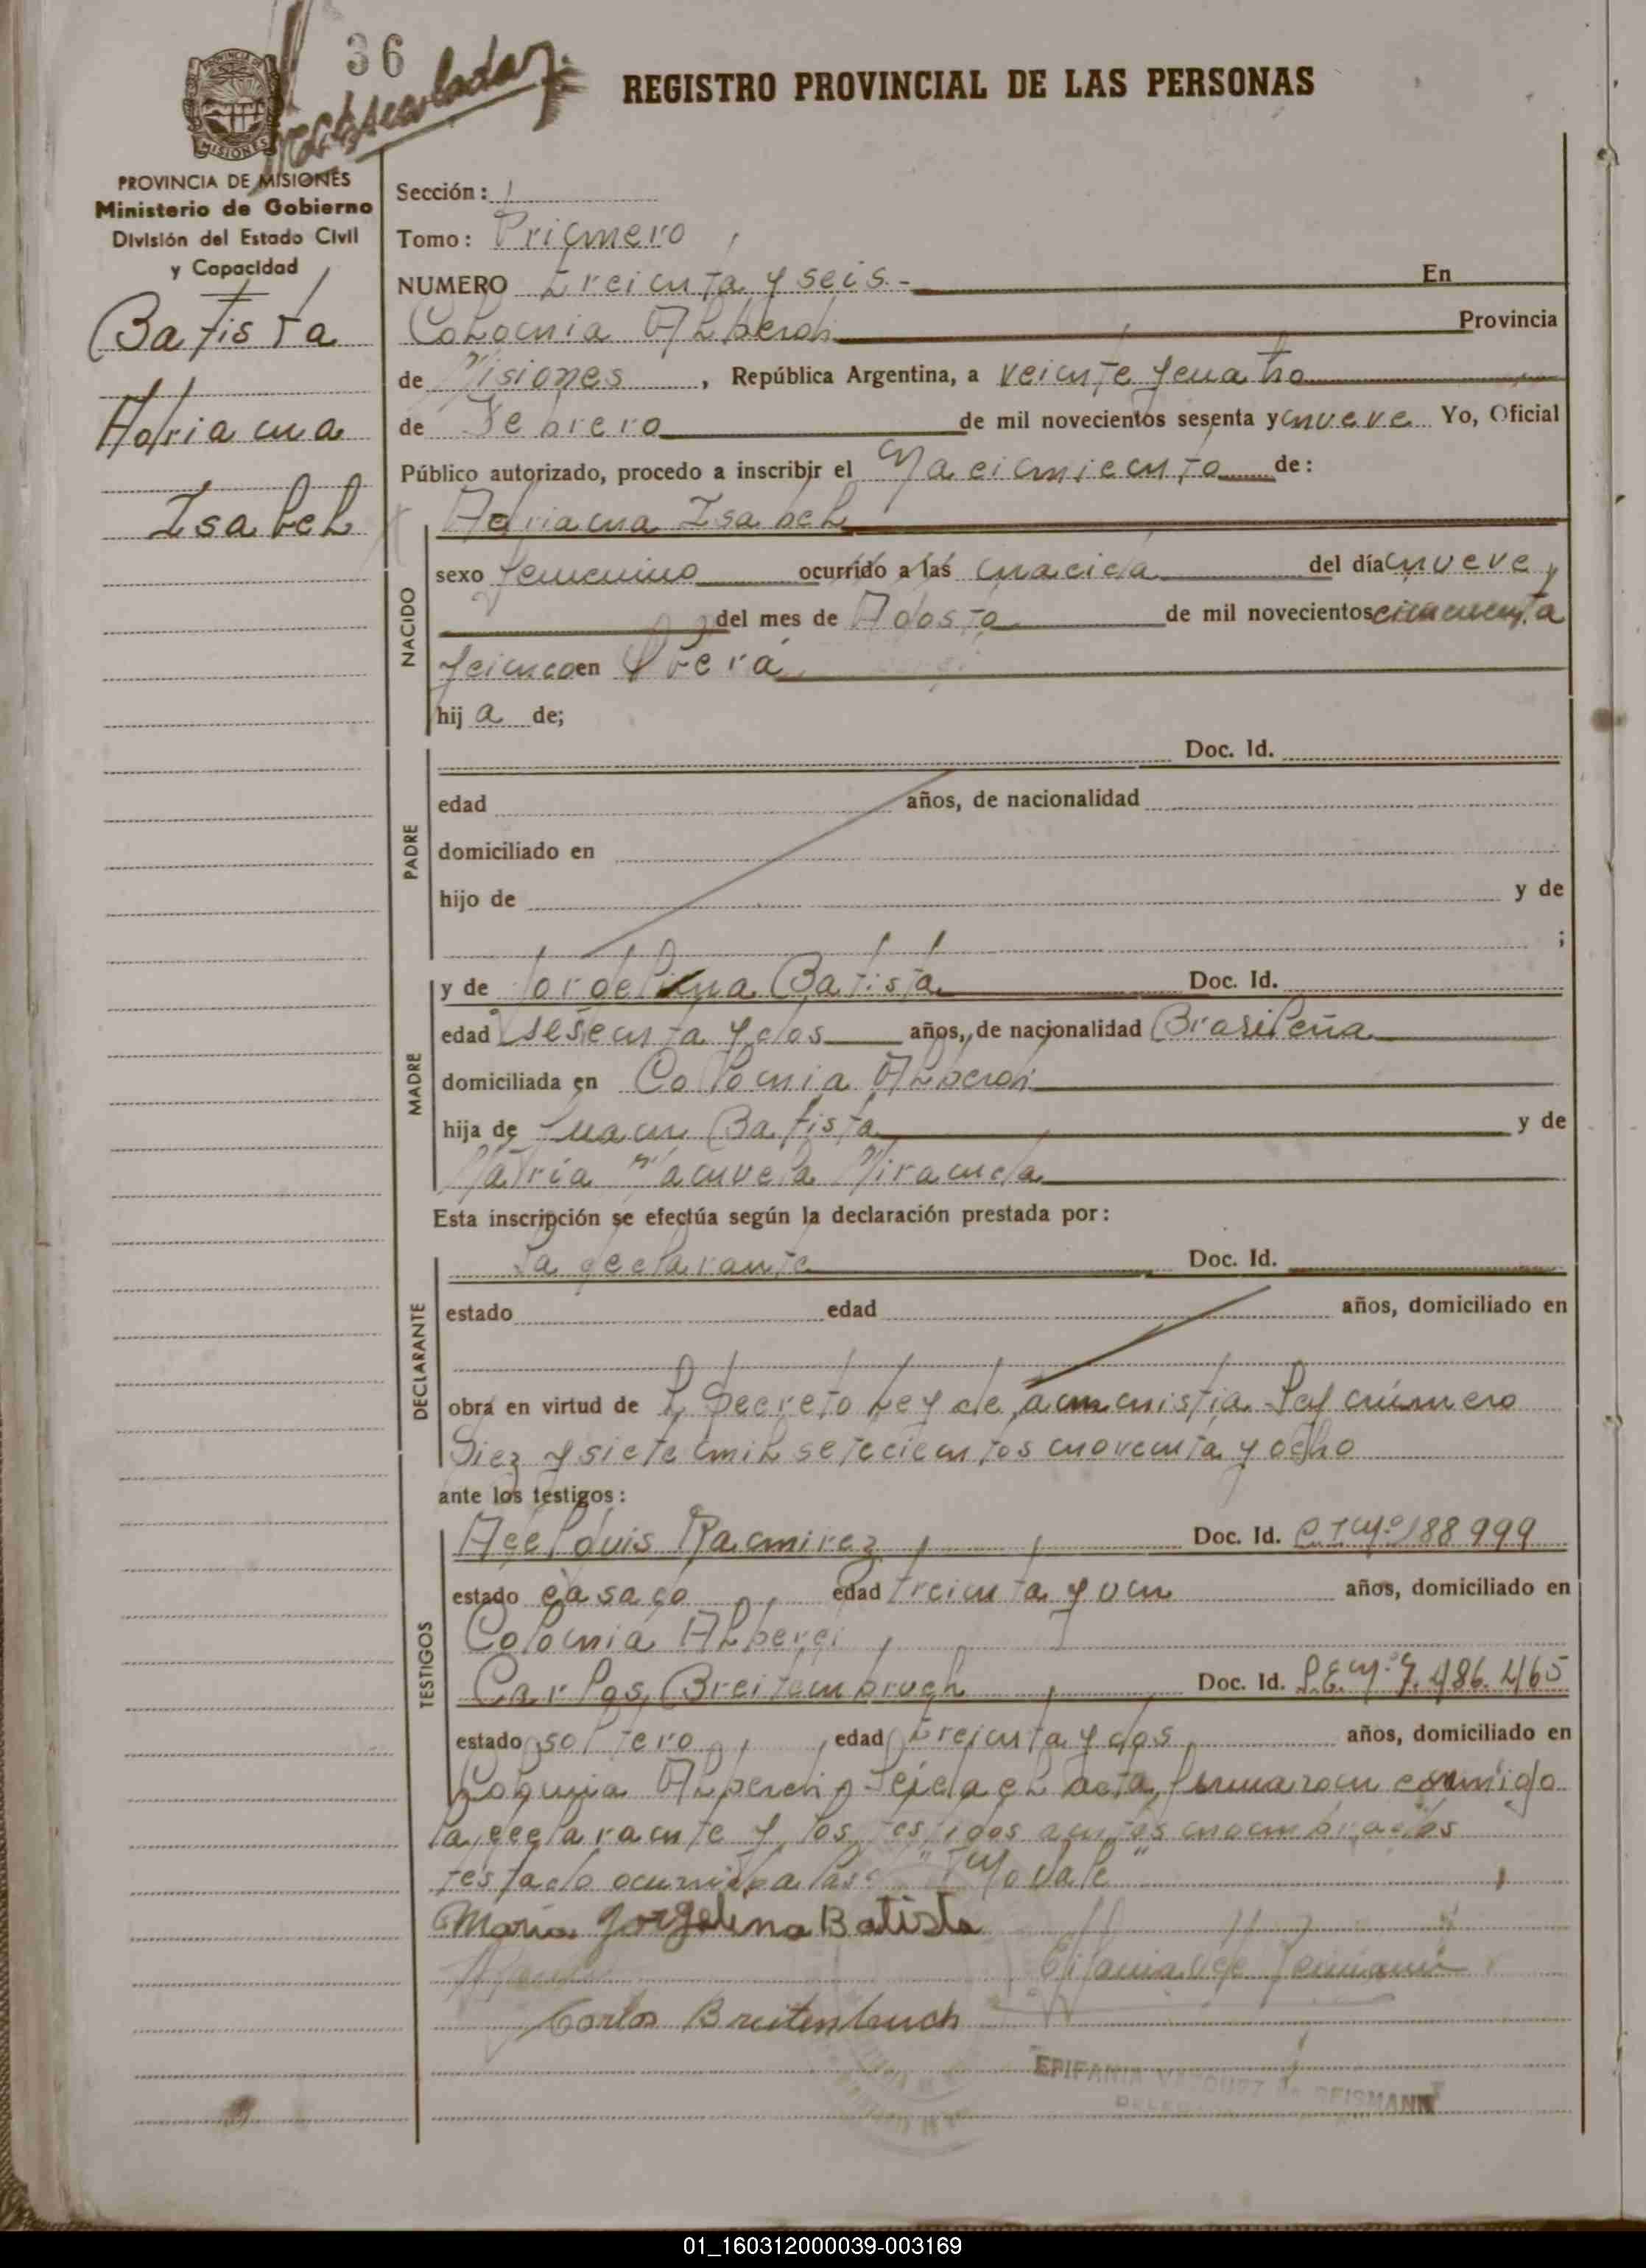 36
REGISTRO PROVINCIAL DE LAS PERSONAS
PROVINCIA DE MISIONES
PROVINCIA DE MISIONES
Ministerio de Gobierno
División del Estado Civil
y Capacidad
Batista
Adriana
Isabel
Sección: 1
Tomo: Primero
NUMERO treinta y seis.- En
Colonia Alberdi Provincia
de Misiones, República Argentina, a veinte y cuatro
de Febrero de mil novecientos sesenta y nueve Yo, Oficial
Público autorizado, procedo a inscribir el Nacimiento de:
NACIDO
Adriana Isabel
sexo femenino ocurrido a las nacida del día nueve
del mes de Agosto de mil novecientos cincuenta
y cinco en Oberá
hij a de;
PADRE
Doc. Id.
edad años, de nacionalidad
domiciliado en
hijo de y de
;
MADRE
y de Jorgelina Batista Doc. Id.
edad sesenta y dos años, de nacionalidad Brasileña
domiciliada en Colonia Alberdi
hija de Juan Batista y de
María Manuela Miranda
Esta inscripción se efectúa según la declaración prestada por:
DECLARANTE
La declarante Doc. Id.
estado edad años, domiciliado en
obra en virtud de l Decreto Ley de amnistia Ley número
Diez y siete mil setecientos noventa y ocho
ante los testigos:
TESTIGOS
Luis Ramirez Doc. Id. 188999
estado casado edad treinta y un años, domiciliado en
Colonia Alberdi
Carlos Breitembruch Doc. Id. L.E. Nº 7.486.465
estado soltero edad treinta y dos años, domiciliado en
Colonia Alberdi Leida el Acta firmaron conmigo
la declarante y los testigos antes nombrados
testado ocurrido a las "No vale"
María Jorgelina Batista
Carlos Breitenbruch
EPIFANIA VAZQUEZ de REISMANN
01_160312000039-003169